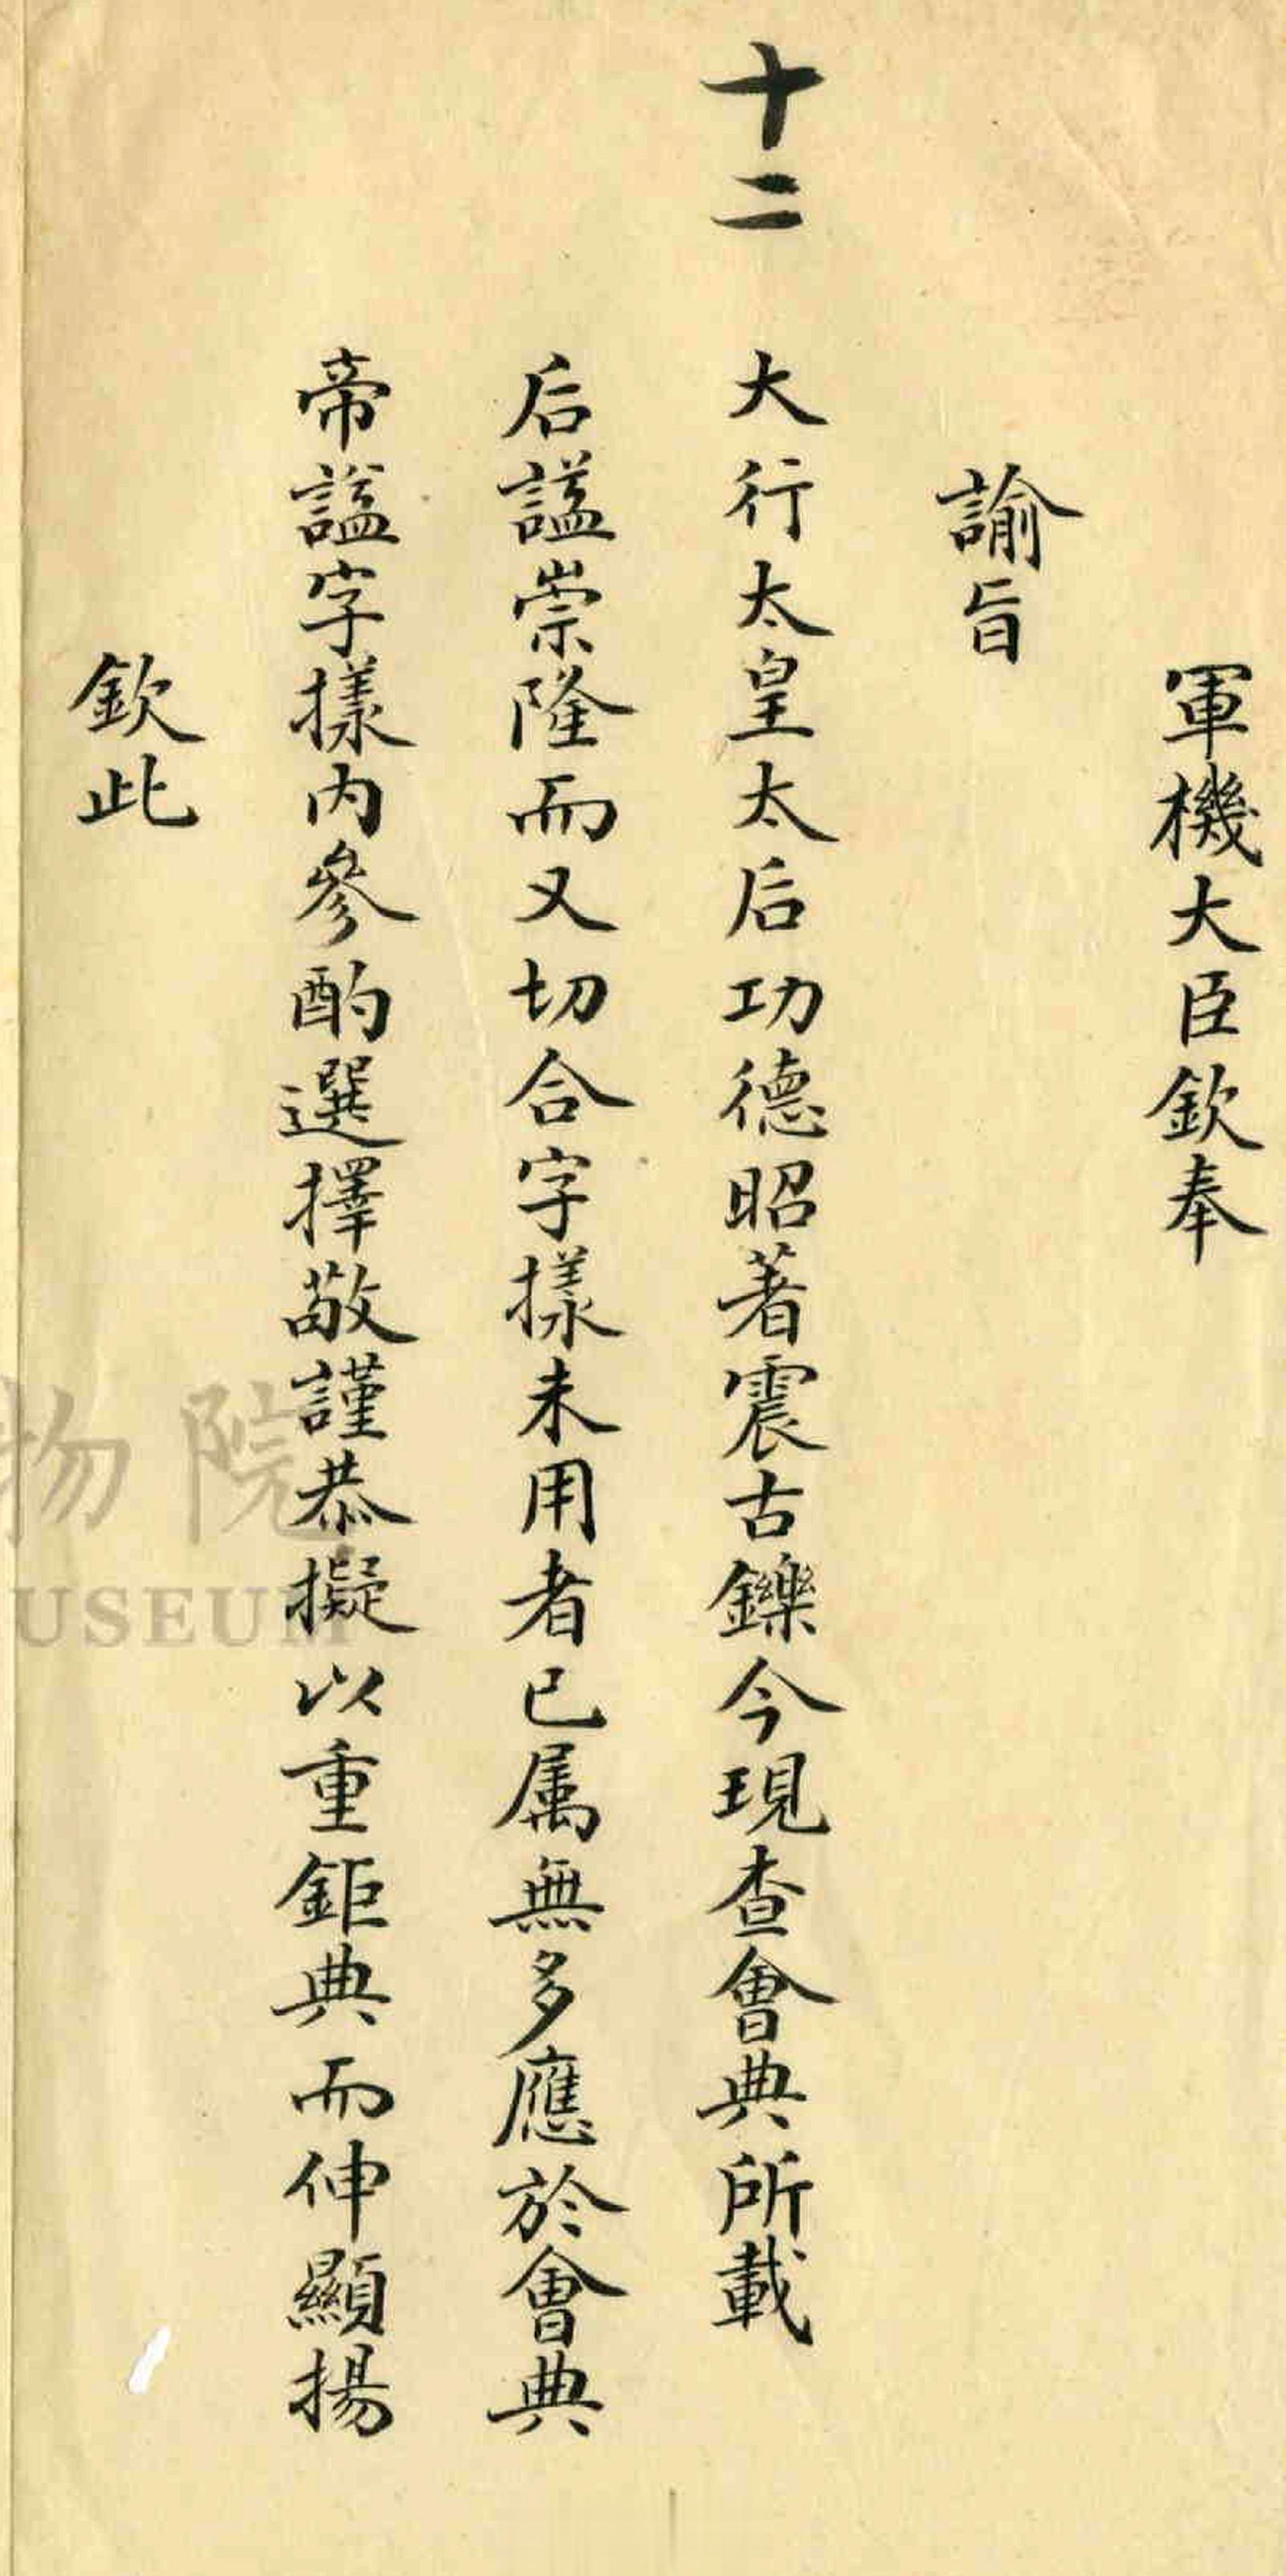 軍機大臣欽奉
諭旨
十二
大行太皇太后功德昭著震古鑠今現查會典所載
后謚崇隆而又切合字樣未用者已属無多應於會典
帝謚字樣内參酌選擇敬謹恭擬以重鉅典而伸顯揚
欽此
物院
USEUM